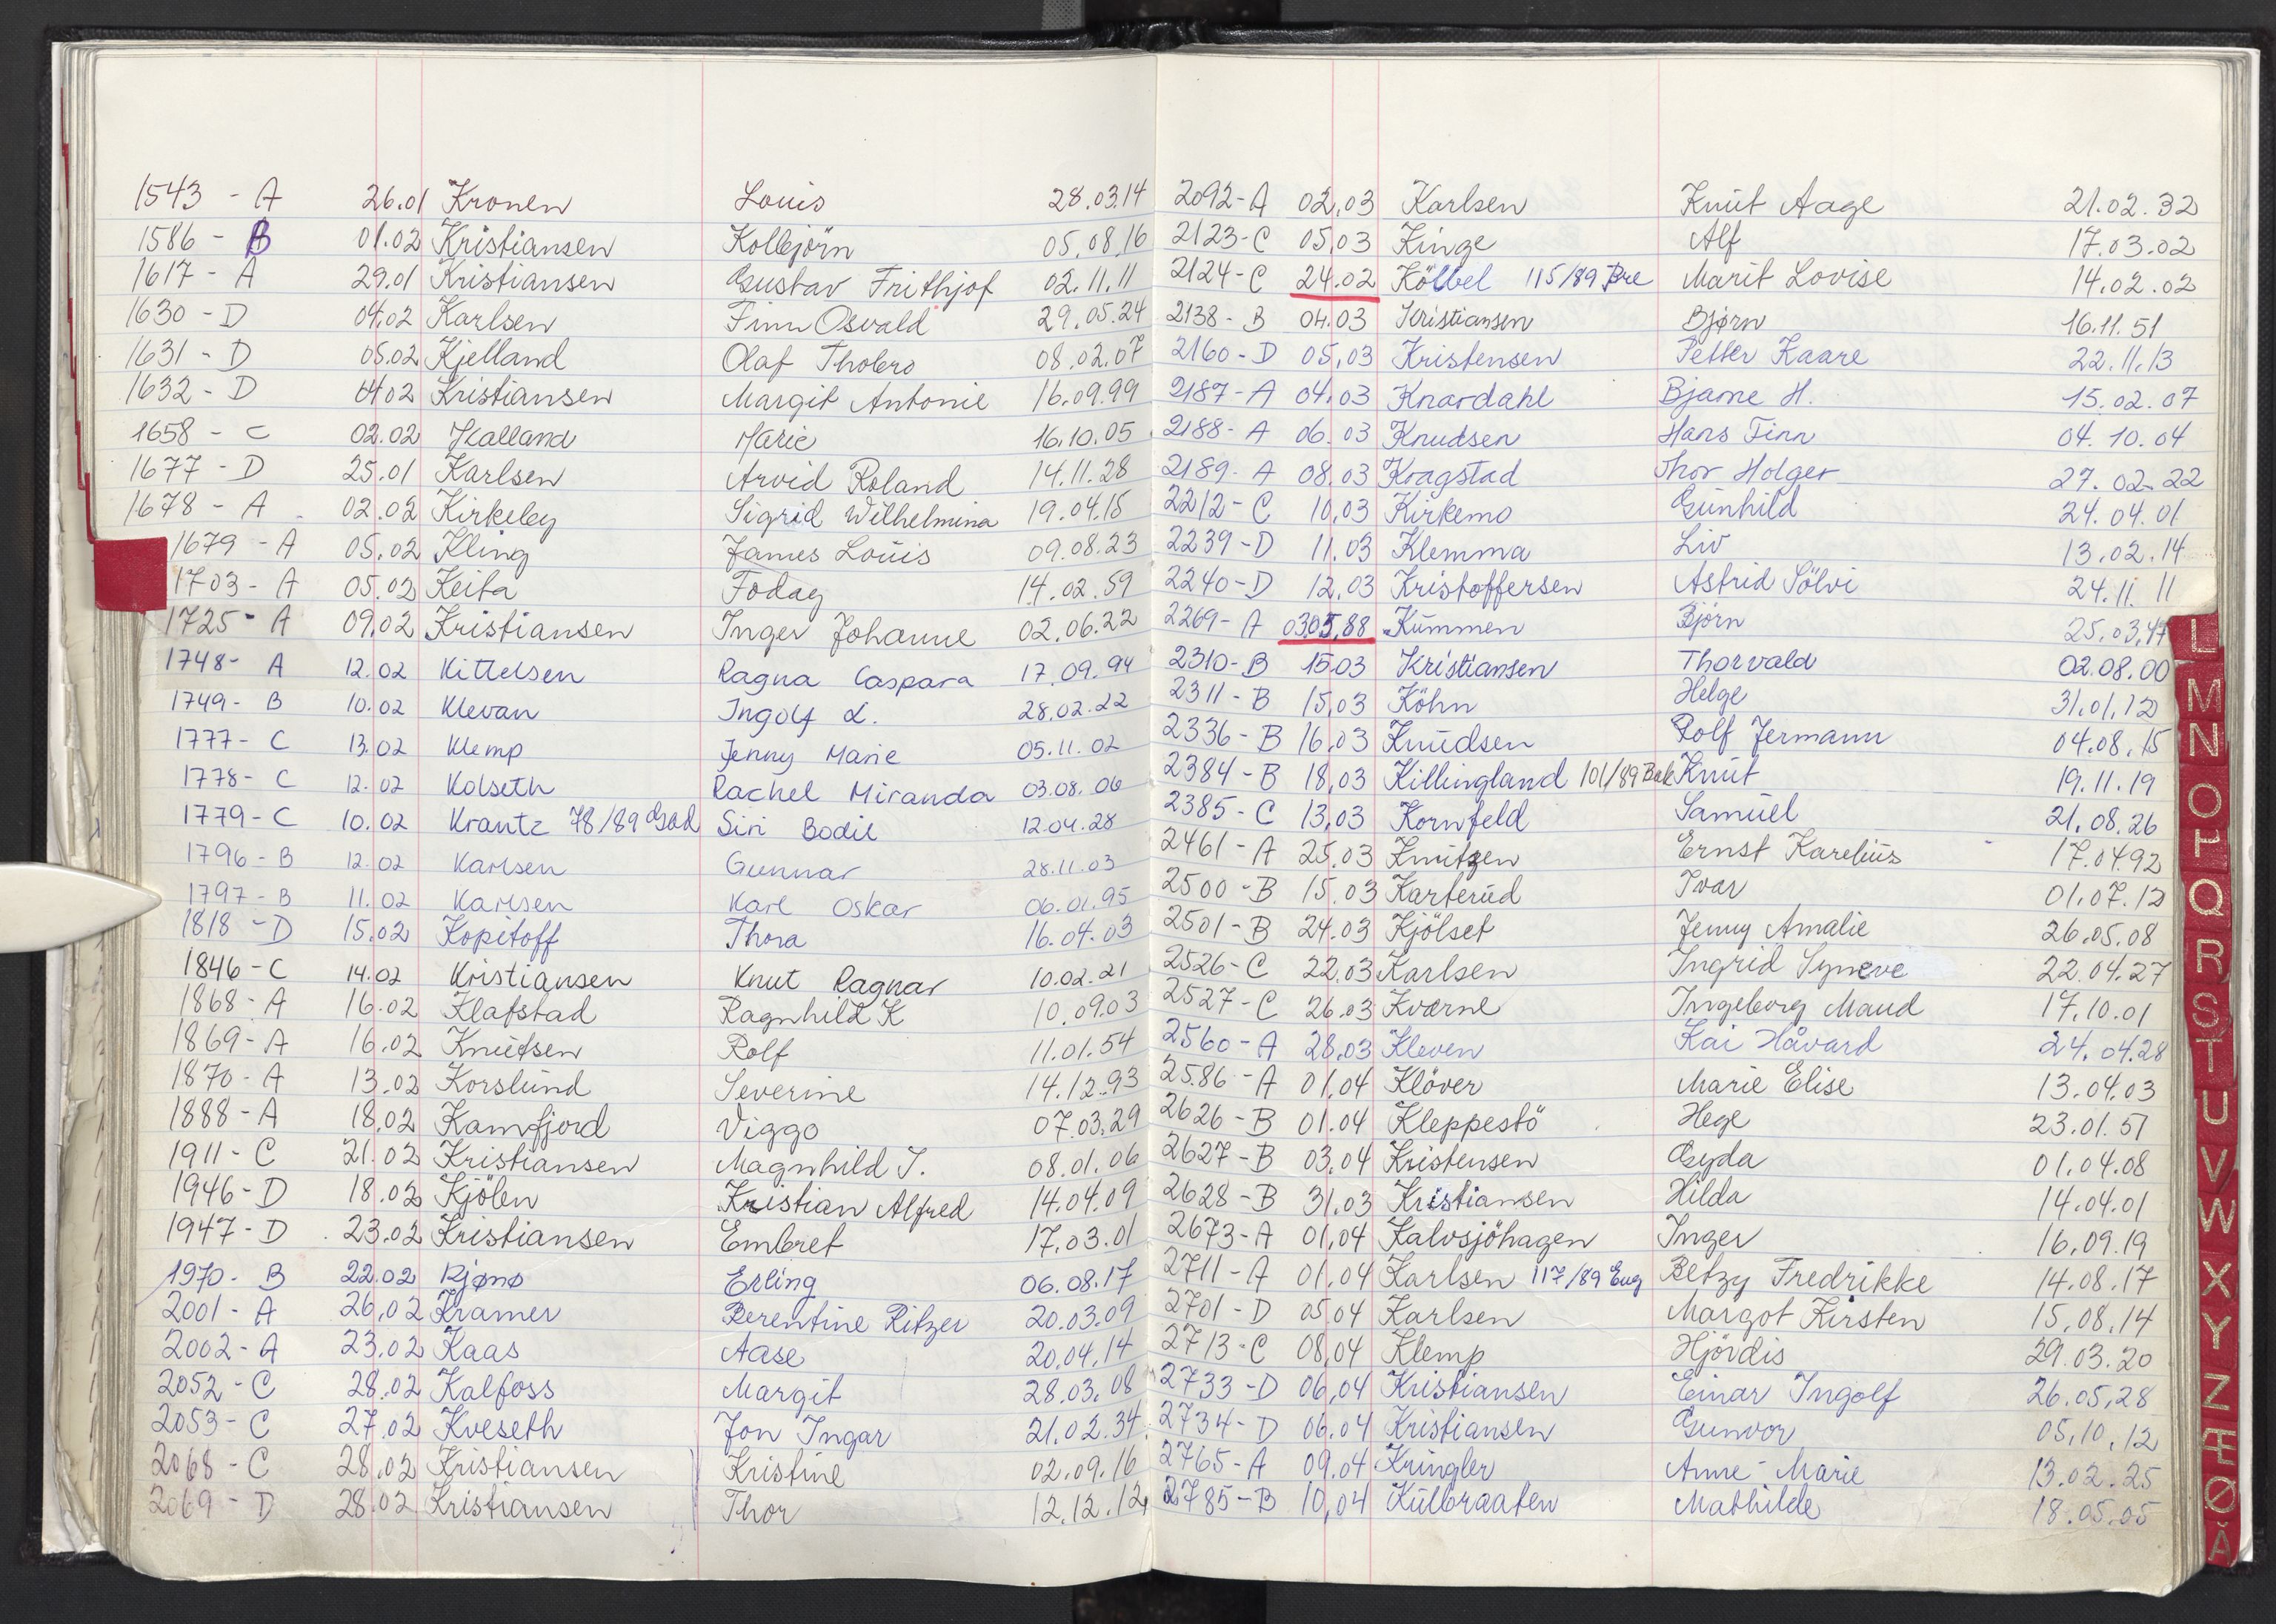 1543 - A 26.01 Kronen Louis 28.03.14
1586 - B 01.02 Kristiansen Kolbjörn 05.08.16
1617 - A 29.01 Kristiansen Gustav Frithjof 02.11.11
1630 - D 04.02 Karlsen Finn Osvald 29.05.24
1631 - D 05.02 Kjelland Olaf Tholero 08.02.07
1632 - D 04.02 Kristiansen Margit Antonie 16.09.99
1658 - C 02.02 Kalland Marie 16.10.05
1677 - D 25.01 Karlsen Arvid Roland 14.11.28
1678 - A 02.02 Kirkeby Sigrid Wilhelmina 19.04.15
1679 - A 05.02 Kling James Louis 09.08.23
1703 - A 05.02 Keita Foday 14.02.59
1725 - A 09.02 Kristiansen Inger Johanne 02.06.22
1748 - A 12.02 Kittelsen Ragna Caspara 17.09.94
1749 - B 10.02 Klevan Ingolf L. 28.02.22
1777 - C 13.02 Klemp Jenny Marie 05.11.02
1778 - C 12.02 Kolseth Rachel Miranda 03.08.06
1779 - C 10.02 Krantz 78/89 Gad Siri Bodil 12.04.28
1796 - B 12.02 Karlsen Gunnar 28.11.03
1797 - B 11.02 Karlsen Karl Oskar 06.01.95
1818 - D 15.02 Kopitoff Thora 16.04.03
1846 - C 14.02 Kristiansen Knut Ragnar 10.02.21
1868 - A 16.02 Klafstad Ragnhild K 10.09.03
1869 - A 16.02 Knutsen Rolf 11.01.54
1870 - A 13.02 Korslund Severine 14.12.93
1888 - A 18.02 Kamfjord Viggo 07.03.29
1911 - C 21.02 Kristiansen Magnhild J. 08.01.06
1946 - D 18.02 Kjölen Kristian Alfred 14.04.09
1947 - D 23.02 Kristiansen Embret 17.03.01
1970 - B 22.02 Kjønø Erling 06.08.17
2001 - A 26.02 Kramer Berentine Ritzer 20.03.09
2002 - A 23.02 Kaas Aase 20.04.14
2052 - C 28.02 Kalfoss Margit 28.03.08
2053 - C 27.02 Kveseth Jon Ingar 21.02.34
2068 - C 28.02 Kristiansen Kristine 02.09.16
2069 - D 28.02 Kristiansen Thor 12.12.12
2092 - A 02.03 Karlsen Knut Aage 21.02.32
2123 - C 05.03 Kinge Alf 17.03.02
2124 - C 24.02 Kölbel 115/89 Bre Marit Lovise 14.02.02
2138 - B 04.03 Kristiansen Bjørn 16.11.51
2160 - D 05.03 Kristensen Petter Kaare 22.11.13
2187 - A 04.03 Knardahl Bjarne H. 15.02.07
2188 - A 06.03 Knudsen Hans Finn 04.10.04
2189 - A 08.03 Kragstad Thor Holger 27.02.22
2212 - C 10.03 Kirkemo Gunhild 24.04.01
2239 - D 11.03 Klemma Liv 13.02.14
2240 - D 12.03 Kristoffersen Astrid Sölvi 24.11.11
2269 - A 03.05.88 Kummen Björn 25.03.47
2310 - B 15.03 Kristiansen Thorvald 02.08.00
2311 - B 15.03 Köhn Helge 31.01.12
2336 - B 16.03 Knudsen Rolf Jermann 04.08.15
2384 - B 18.03 Killingland 101/89 Bak Knut 19.11.19
2385 - C 13.03 Kornfeld Samuel 21.08.26
2461 - A 25.03 Knutzen Ernst Karelius 17.04.92
2500 - B 15.03 Karterud Ivar 01.07.12
2501 - B 24.03 Kjölset Jenny Amalie 26.05.08
2526 - C 22.03 Karlsen Ingrid Syneve 22.04.27
2527 - C 26.03 Kværne Ingeborg Maud 17.10.01
2560 - A 28.03 Kleven Kai Håvard 24.04.28
2586 - A 01.04 Klöver Marie Elise 13.04.03
2626 - B 01.04 Kleppestö Hege 23.01.51
2627 - B 03.04 Kristensen Gyda 01.04.08
2628 - B 31.03 Kristiansen Hilda 14.04.01
2673 - A 01.04 Kalvsjöhagen Inger 16.09.19
2711 - A 01.04 Karlsen 117/89 Eug Betzy Fredrikke 14.08.17
2701 - D 05.04 Karlsen Margot Kirsten 15.08.14
2713 - C 08.04 Klemp Hjördis 29.03.20
2733 - D 06.04 Kristiansen Einar Ingolf 26.05.28
2734 - D 06.04 Kristiansen Gunvor 05.10.12
2765 - A 09.04 Kringler Anne-Marie 13.02.25
2785 - B 10.04 Kulbraaten Mathilde 18.05.05
L
M
N
O
P
Q
R
S
T
U
V
W
X
Y
Z
Æ
Ø
Å